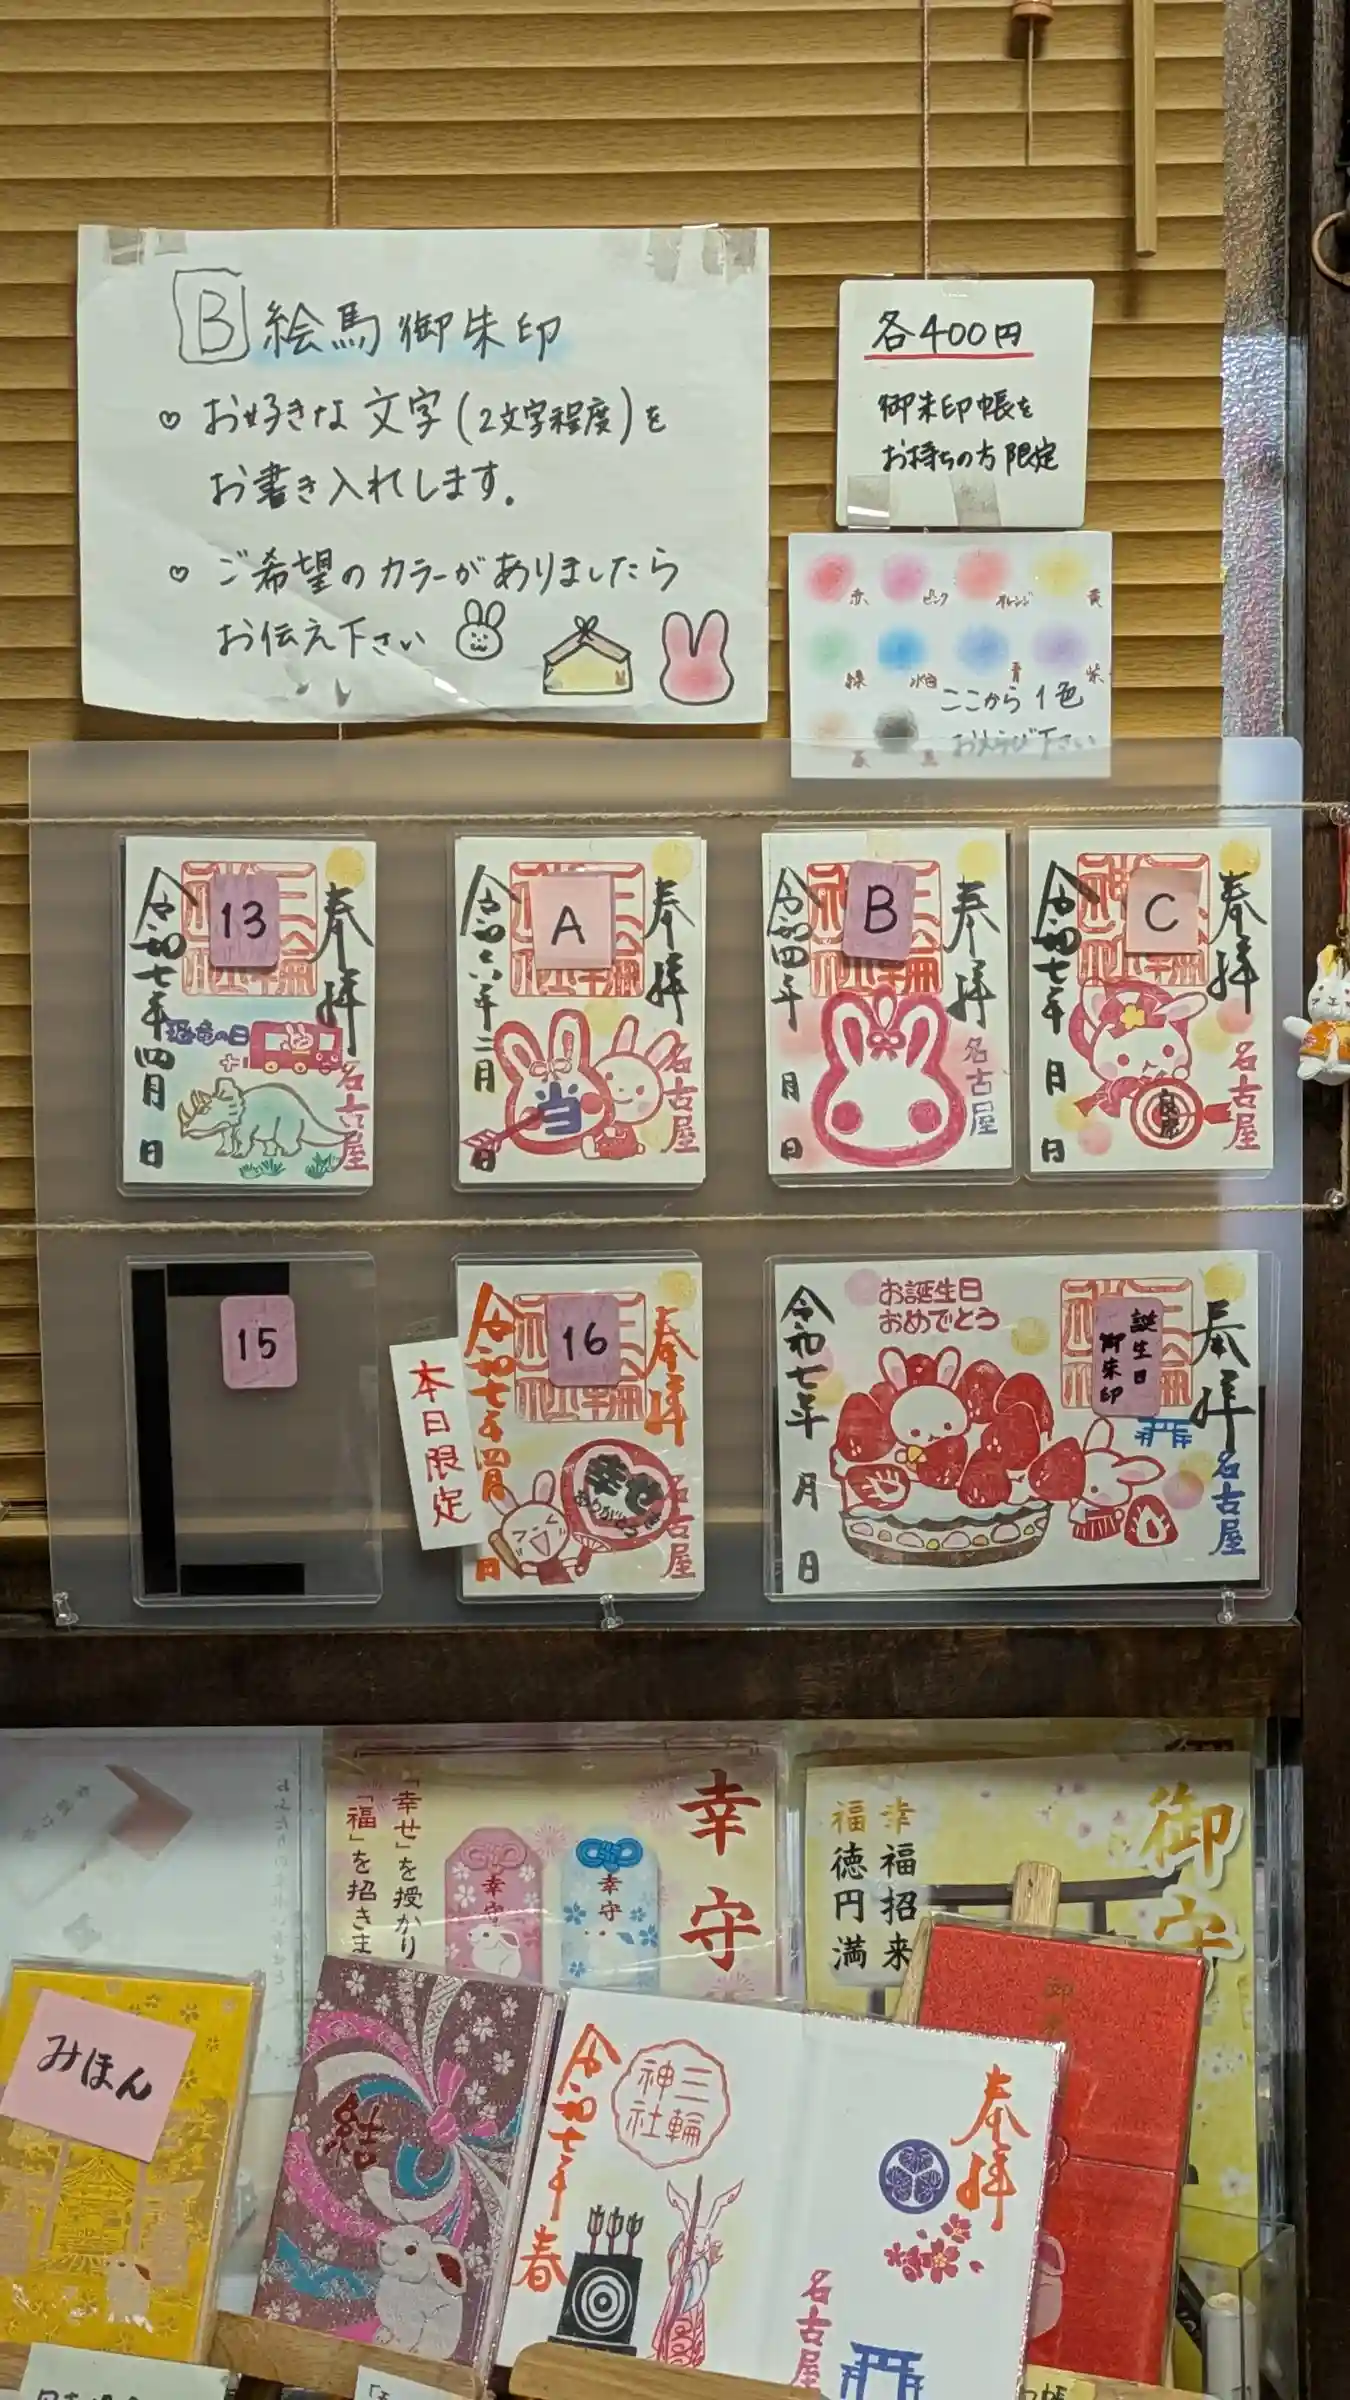 B 絵馬御朱印
♡ お好きな文字(2文字程度)を
お書き入れします。
♡ ご希望のカラーがありましたら
お伝え下さい
各400円
御朱印帳を
お持ちの方限定
赤 ピンク オレンジ 黄
緑 水色 青 紫
ここから1色
おえらび下さい
13
奉拝
令和七年四月 日
恐竜の日
名古屋
A
奉拝
令和六年二月 日
当
名古屋
B
奉拝
令和四年 月 日
名古屋
C
奉拝
令和七年 月 日
名古屋
15
本日限定
16
奉拝
令和七年四月 日
幸せ
ありがとう
名古屋
お誕生日
おめでとう
誕生日
御朱印
奉拝
令和七年 月 日
名古屋
幸守
「幸せ」を授かり
「福」を招きま
幸守
幸守
御守
幸福招来
福徳円満
みほん
結
奉拝
三輪
神社
令和七年 春
名古屋